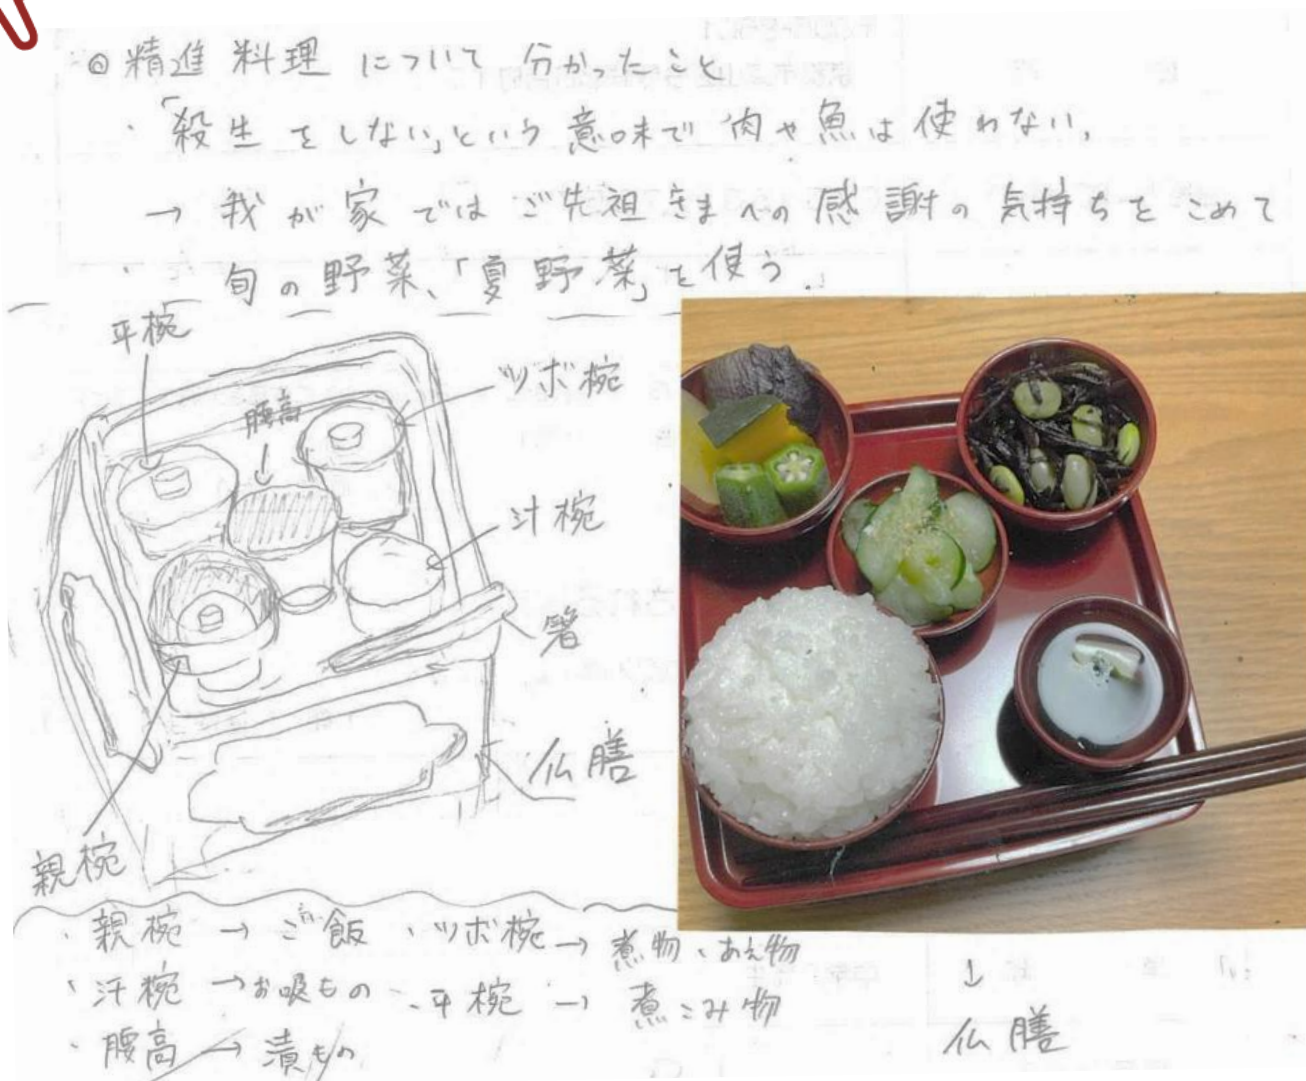 ◎精進料理について分かったこと
・「殺生をしない」という意味で肉や魚は使わない。
→我が家ではご先祖さまへの感謝の気持ちをこめて
旬の野菜、「夏野菜」を使う。
平椀
ツボ椀
腰高
汁椀
箸
仏膳
親椀
・親椀→ご飯 ・ツボ椀→煮物、あえ物
・汁椀→お吸もの ・平椀→煮こみ物
・腰高→漬もの
↓
仏膳